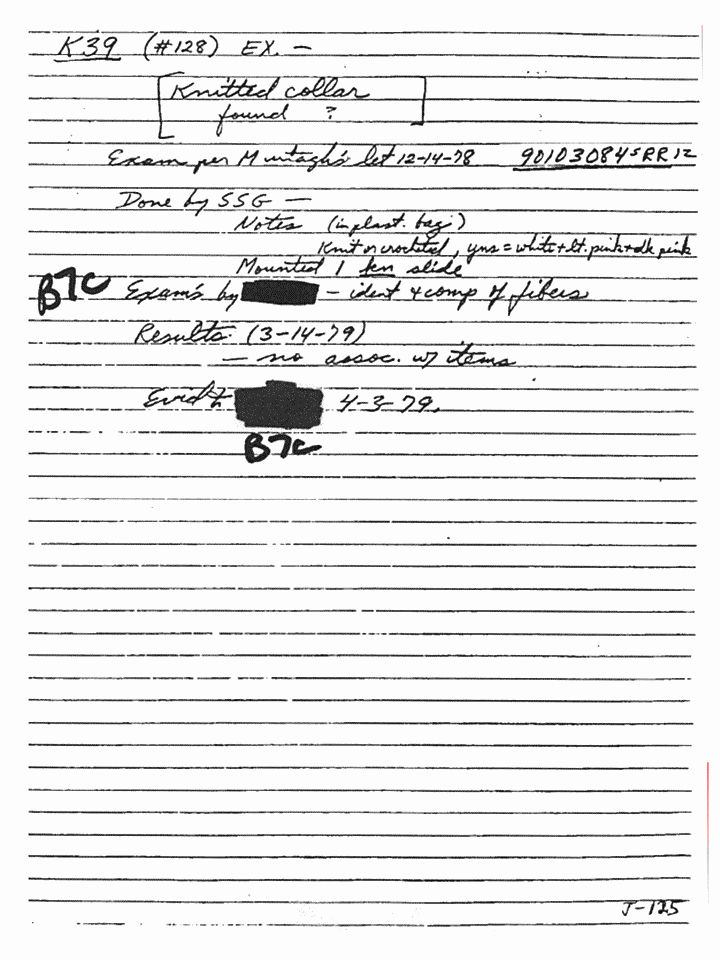 K39 (#128) EX. —
Knitted collar
found ?
Exam per Murtagh's let 12-14-78 90103084SRR12
Done by SSG —
Notes (in plast. bag)
Knit or crocheted, yns = white + lt. pink + dk pink
Mounted 1 kn slide
B7C Exam's by — ident + comp of fibers
Results: (3-14-79)
— no assoc. w/ items
Evid 4-3-79.
B7C
J-125